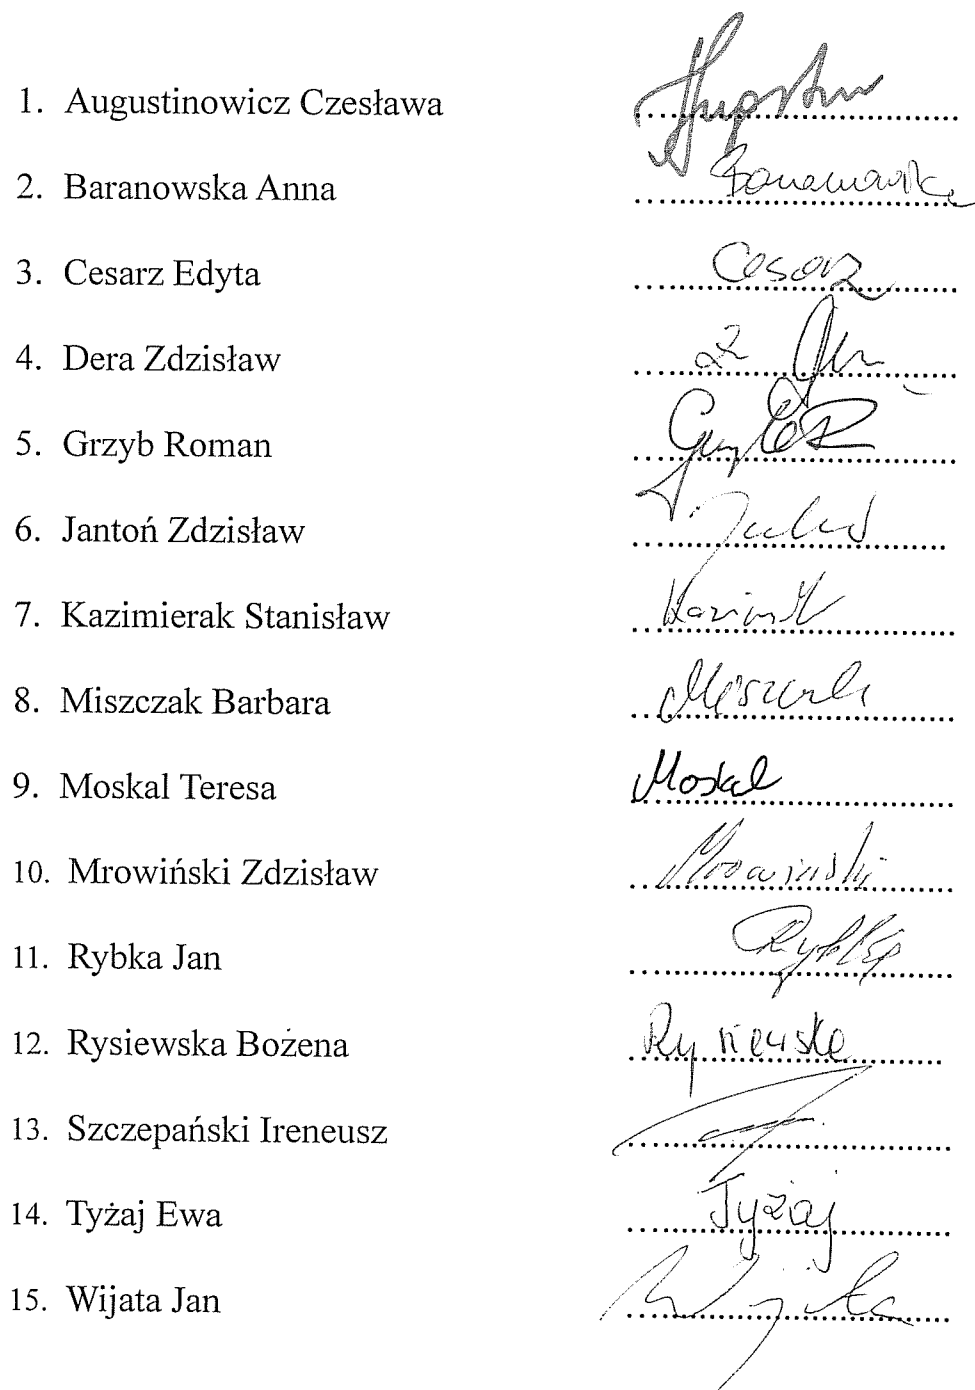 1. Augustinowicz Czesława
2. Baranowska Anna Baranowska
3. Cesarz Edyta Cesarz
4. Dera Zdzisław
5. Grzyb Roman
6. Jantoń Zdzisław
7. Kazimierak Stanisław
8. Miszczak Barbara
9. Moskal Teresa Moskal
10. Mrowiński Zdzisław Mrowiński
11. Rybka Jan Rybka
12. Rysiewska Bożena Rysiewska
13. Szczepański Ireneusz
14. Tyżaj Ewa Tyżaj
15. Wijata Jan